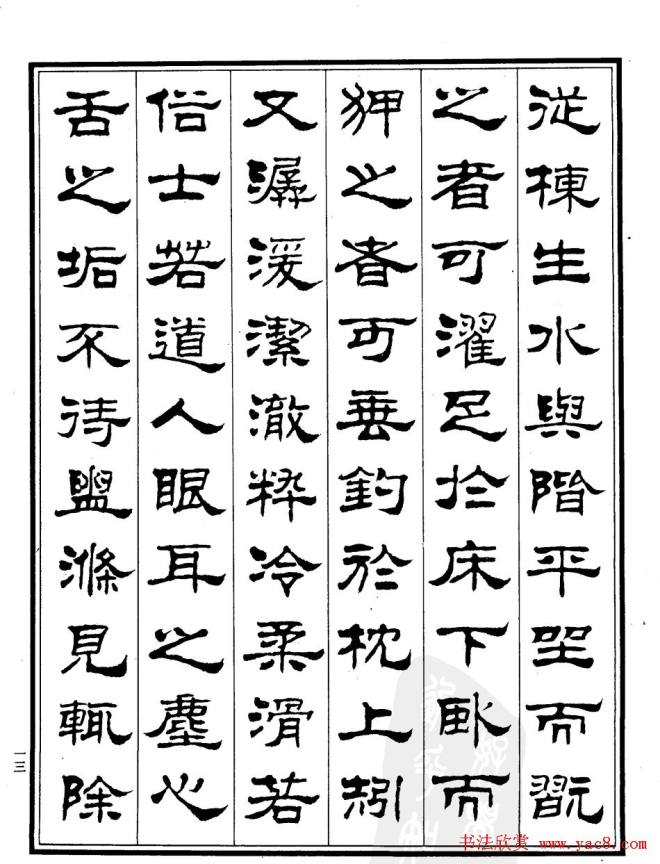 從棟生水與階平坐而翫
之者可濯足於床下臥而
狎之者可垂釣於枕上矧
又潺湲潔澈粹冷柔滑若
俗士若道人眼耳之塵心
舌之垢不待盥滌見輒除
一三
书法欣赏 www.yac8.com